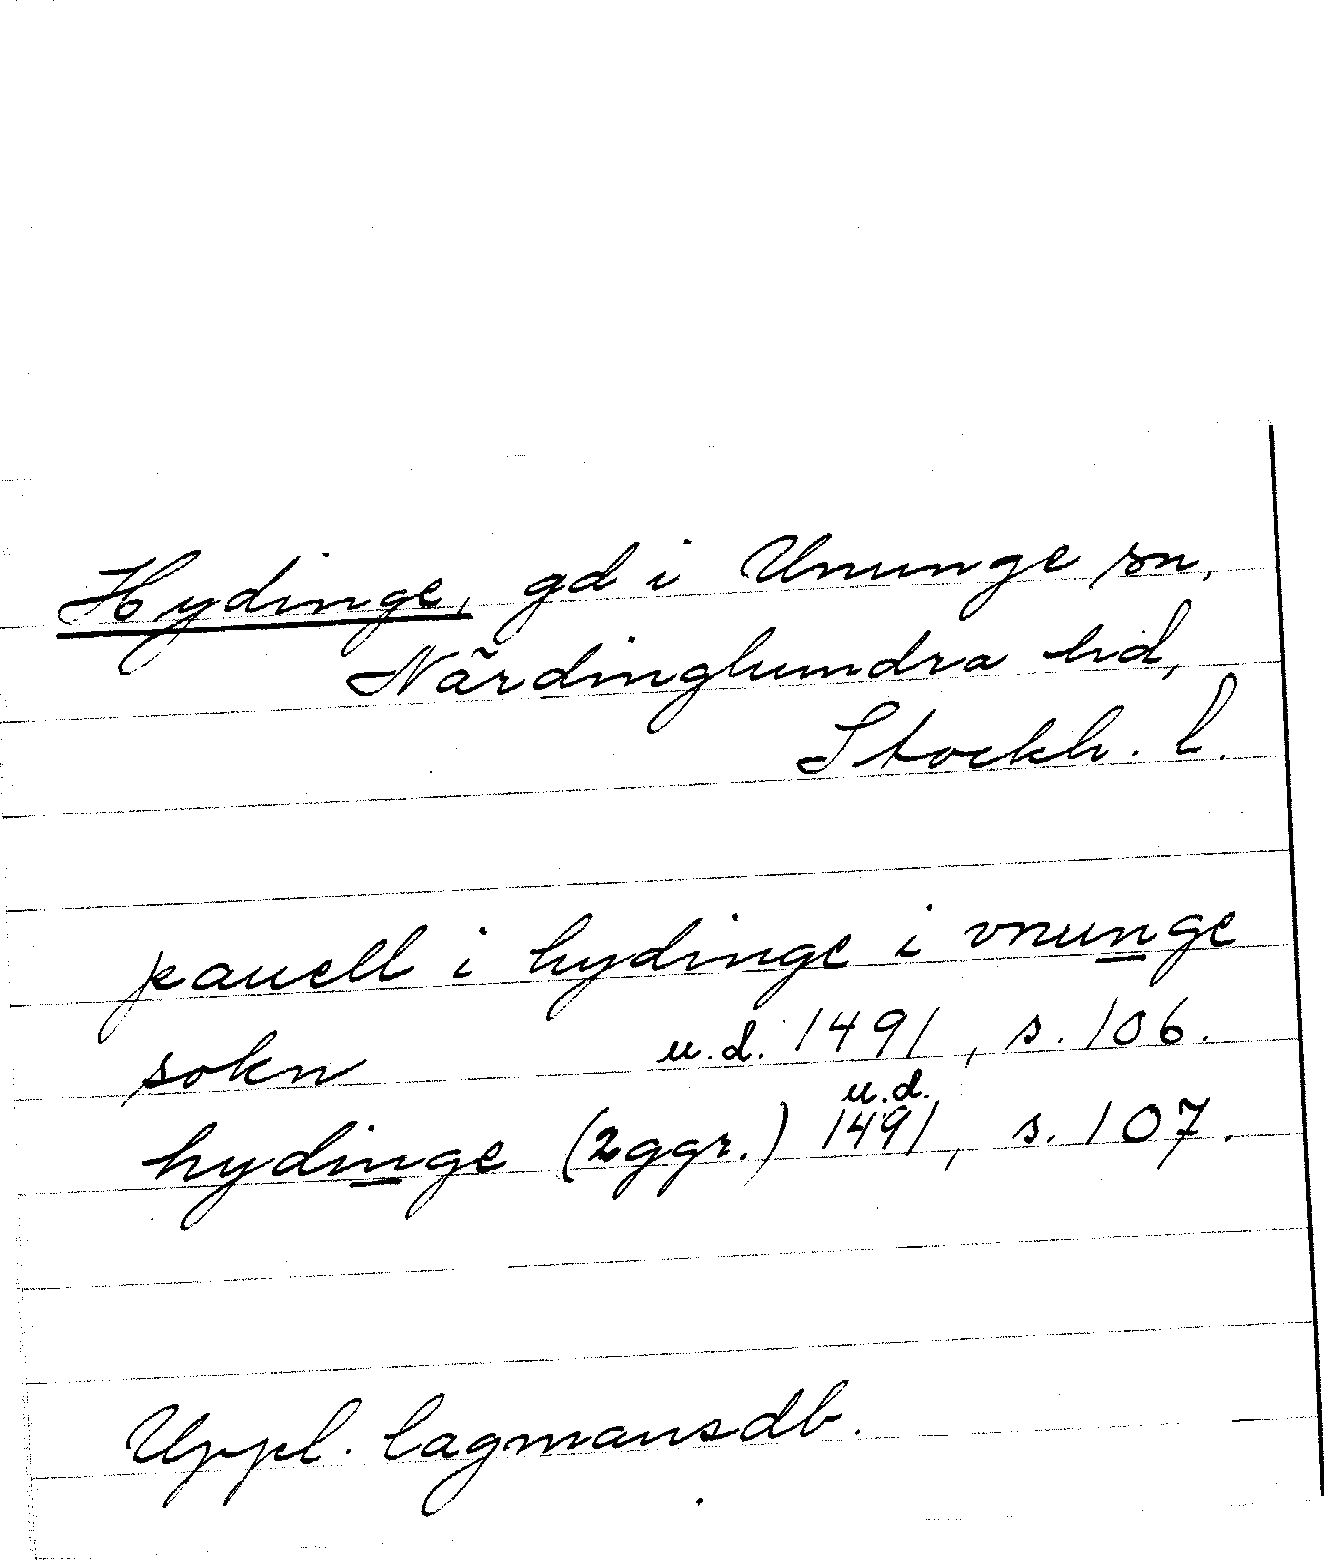 Hydinge, gd i Ununge sn,
Närdinghundra hd,
Stockh. l.
pauell i hydinge i vnunge
sokn u.d. 1491, s. 106.
hydinge (2ggr.) u.d. 1491, s. 107.
Uppl. lagmansdb.